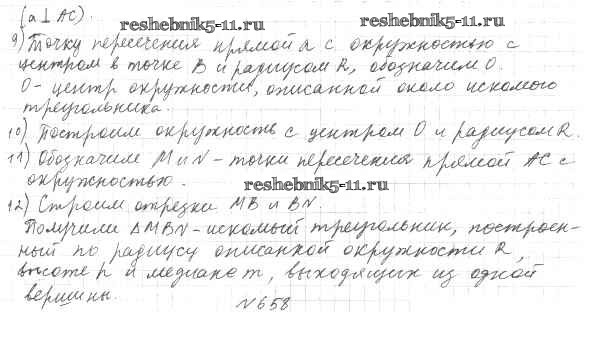 (a ⊥ AC).
reshebnik5-11.ru
reshebnik5-11.ru
9) Точку пересечения прямой a с окружностью с
центром в точке B и радиусом R, обозначим O.
O - центр окружности, описанной около искомого
треугольника.
10) Построим окружность с центром O и радиусом R.
11) Обозначим M и N - точки пересечения прямой AC с
окружностью.
reshebnik5-11.ru
12) Строим отрезки MB и BN.
Получили ΔMBN - искомый треугольник, построен-
ный по радиусу описанной окружности R,
высоте h и медиане m, выходящих из одной
вершины.
N658